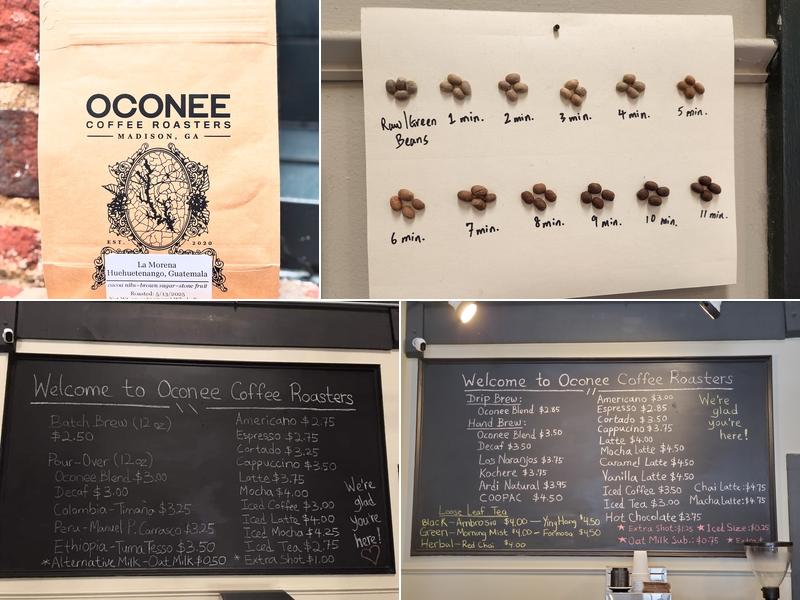 OCONEE
COFFEE ROASTERS
MADISON, GA
EST. 2020
La Morena
Huehuetenango, Guatemala
cocoa nibs-brown sugar-stone fruit
Roasted: 5/13/2025
Raw/Green Beans
1 min.
2 min.
3 min.
4 min.
5 min.
6 min.
7 min.
8 min.
9 min.
10 min.
11 min.
Welcome to Oconee Coffee Roasters
Batch Brew (12 oz)
$2.50
Pour-Over (12 oz)
Oconee Blend $3.00
Decaf $3.00
Colombia-Timaña $3.25
Peru-Manuel P. Carrasco $3.25
Ethiopia-Tuma Tesso $3.50
*Alternative Milk-Oat Milk $0.50
Americano $2.75
Espresso $2.75
Cortado $3.25
Cappuccino $3.50
Latte $3.75
Mocha $4.00
Iced Coffee $3.00
Iced Latte $4.00
Iced Mocha $4.25
Iced Tea $2.75
* Extra Shot $1.00
We're
glad
you're
here!
Welcome to Oconee Coffee Roasters
Drip Brew:
Oconee Blend $2.85
Hand Brew:
Oconee Blend $3.50
Decaf $3.50
Los Naranjos $3.75
Kochere $3.75
Ardi Natural $3.95
COOPAC $4.50
Loose Leaf Tea
Black-Ambrosia $4.00-Ying Hong $4.50
Green-Morning Mist $4.00-Formosa $4.50
Herbal-Red Chai $4.00
Americano $3.00
Espresso $2.85
Cortado $3.50
Cappucino $3.75
Latte $4.00
Mocha Latte $4.50
Caramel Latte $4.50
Vanilla Latte $4.50
Iced Coffee $3.50
Iced Tea $3.00
Hot Chocolate $3.75
Chai Latte: $4.75
Macha Latte: $4.75
* Extra Shot: $1.25 * Iced Size: $0.25
* Oat Milk Sub.: $0.75 * Extra
We're
glad
you're
here!